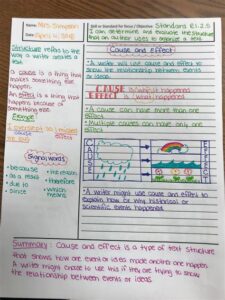 Name: Mrs. Simpson
Date: April 4, 2018
Skill or Standard for Focus / Objective: Standards RI.2.5
I can determine and evaluate the structure
that an author uses to organize a text.
Structure refers to the
way a writer creates a
text.
A cause is a thing that
makes something else
happen.
An effect is a thing that
happens because of
something else.
Example
I overslept so I missed
Signal words
• because
• as a result
• due to
• since
• the reason
• therefore
• which
means
Cause and Effect
• A writer will use cause and effect to
show the relationship between events
or ideas.
CAUSE = why it happened
EFFECT = what happened
• A cause can have more than one
effect.
• Multiple causes can have only one
effect
CAUSE
EFFECT
• A writer might use cause and effect to
explain how or why historical or
scientific events happened.
Summary: Cause and effect is a type of text structure
that shows how one event or idea made another one happen.
A writer might choose to use this if they are trying to show
the relationship between events or ideas.